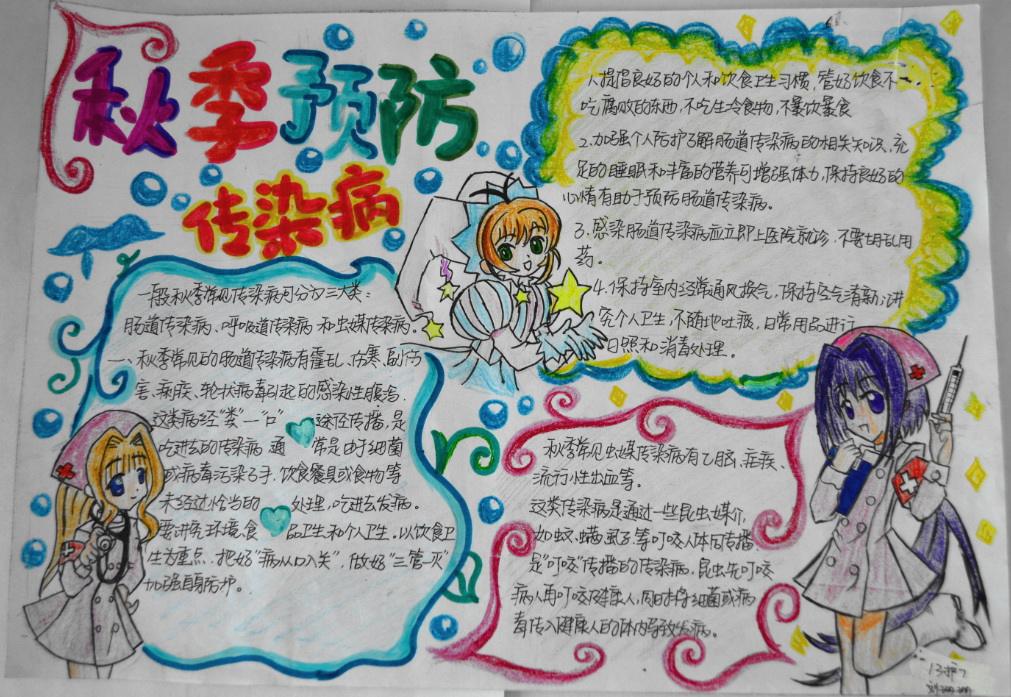 秋季预防
传染病
一般秋季常见传染病可分为三大类：
肠道传染病、呼吸道传染病和虫媒传染病。
一、秋季常见的肠道传染病有霍乱、伤寒、副伤
害、痢疾、轮状病毒引起的感染性腹泻.
这类病经"粪"一"口"途径传播,是
吃进去的传染病 通常是由于细菌
或病毒污染了手、饮食餐具或食物等
未经过恰当的处理,吃进去发病。
要讲究环境、食品卫生和个人卫生。以饮食卫
生为重点、把好"病从口入关",做好"三管一灭"
加强自身防护。
1.提倡良好的个人和饮食卫生习惯,管好饮食不
吃腐败的东西,不吃生冷食物,不暴饮暴食
2.加强个人防护了解肠道传染病的相关知识,充
足的睡眠和丰富的营养可增强体力,保持良好的
心情有助于预防肠道传染病。
3.感染肠道传染病应立即上医院就诊,不要胡乱用
药。
4.保持室内经常通风换气,保持空气清新;讲
究个人卫生,不随地吐痰,日常用品进行
日照和消毒处理。
秋季常见虫媒传染病有乙脑、疟疾、
流行性出血等.
这类传染病是通过一些昆虫媒介,
如蚊、螨虱子等叮咬人体而传播,
是"叮咬"传播的传染病,昆虫先叮咬
病人再叮咬健康人,同时将细菌或病
毒传入健康人的体内导致发病。